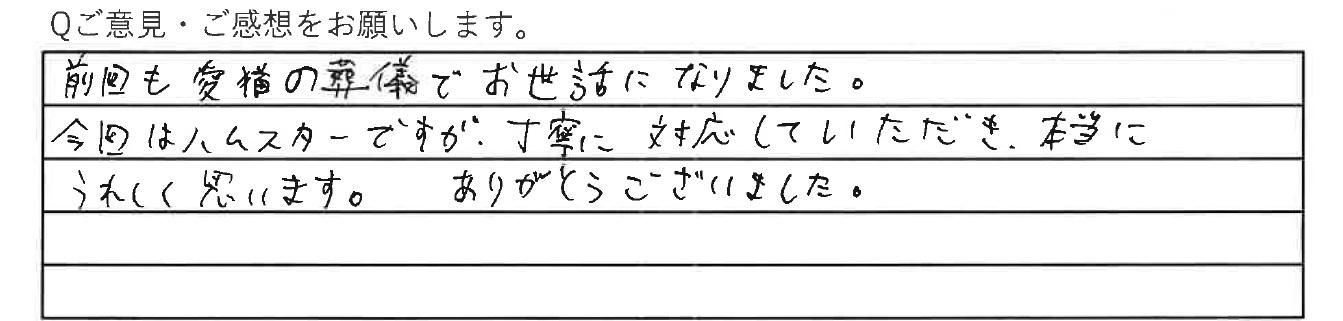 Qご意見・ご感想をお願いします。
前回も愛猫の葬儀でお世話になりました。
今回はハムスターですが、丁寧に対応していただき、本当に
うれしく思います。 ありがとうございました。